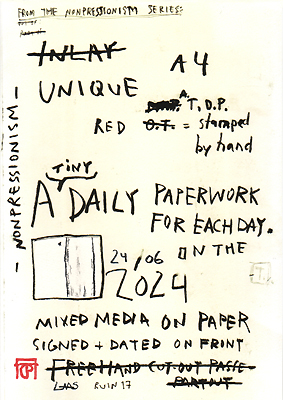 FROM THE NONPRESSIONISM SERIES:
INLAY
A4
UNIQUE
A. T.O.P.
RED O.T. = stamped
by hand
- NONPRESSIONISM -
TINY
A DAILY PAPERWORK
FOR EACH DAY.
ON THE
24/06
2024
MIXED MEDIA ON PAPER
SIGNED + DATED ON FRONT
FREEHAND CUT-OUT PASSE-
PARTOUT